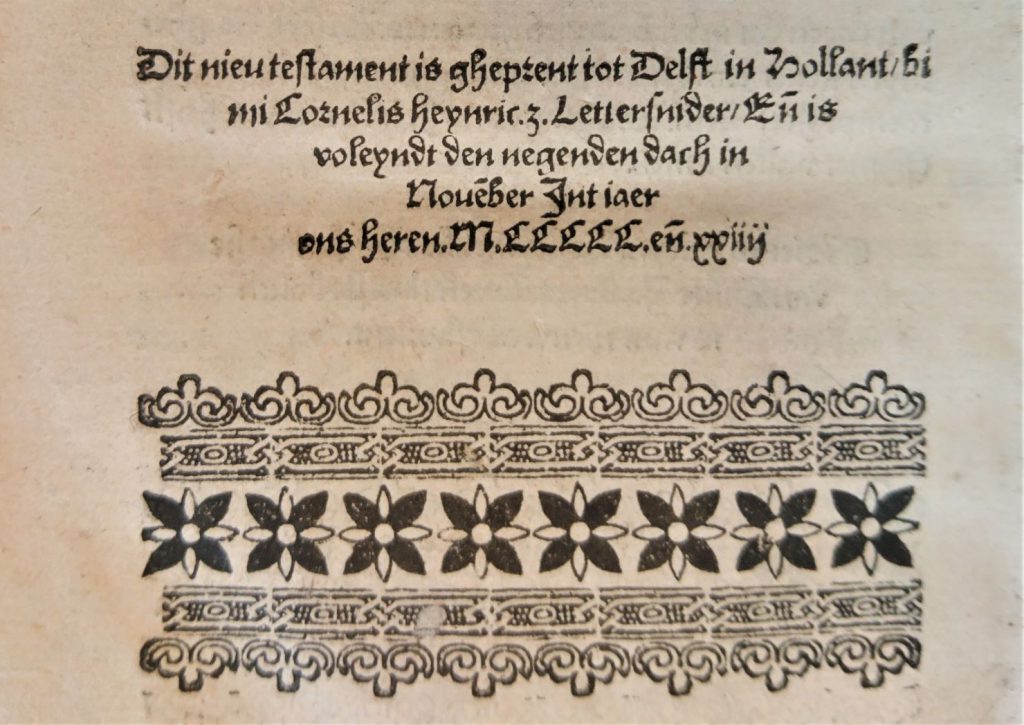 Dit nieu testament is gheprent tot Delft in Hollant/bi
mi Cornelis heynric.z. Lettersnider/Eñ is
voleyndt den negenden dach in
Nouēber Int iaer
ons heren.M.CCCCC.eñ.xxiiij